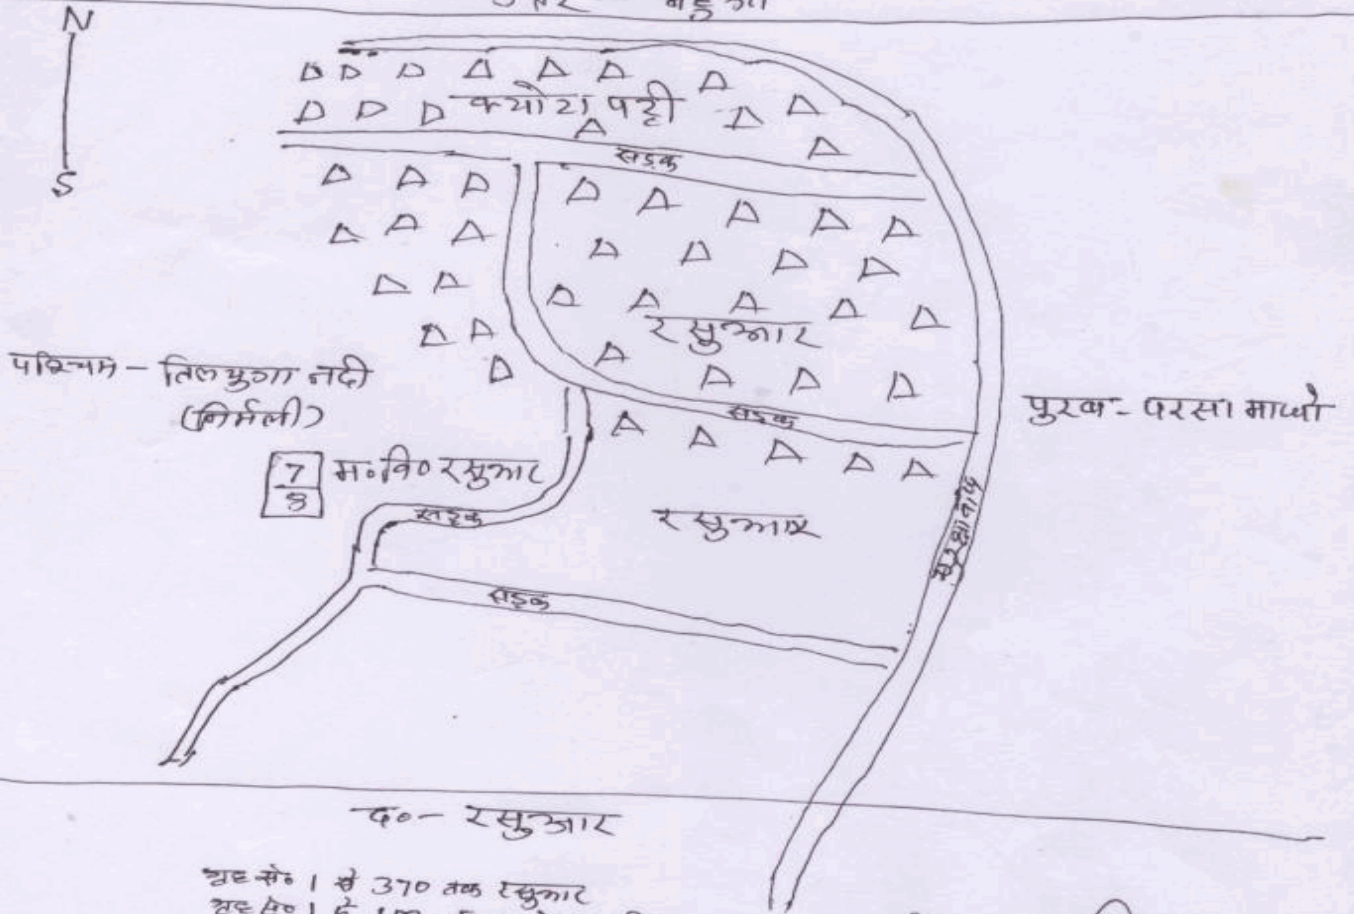 N
S
क्योटा पट्टी
सड़क
रसुआर
पश्चिम - तिलयुगा नदी
(निर्मली)
सड़क
पुरब - परसा माधो
7
8
म० वि० रसुआर
सड़क
रसुआर
सुरक्षा बाँध
सड़क
द० - रसुआर
गृह सं० 1 से 370 तक रसुआर
गृह सं० 1 से